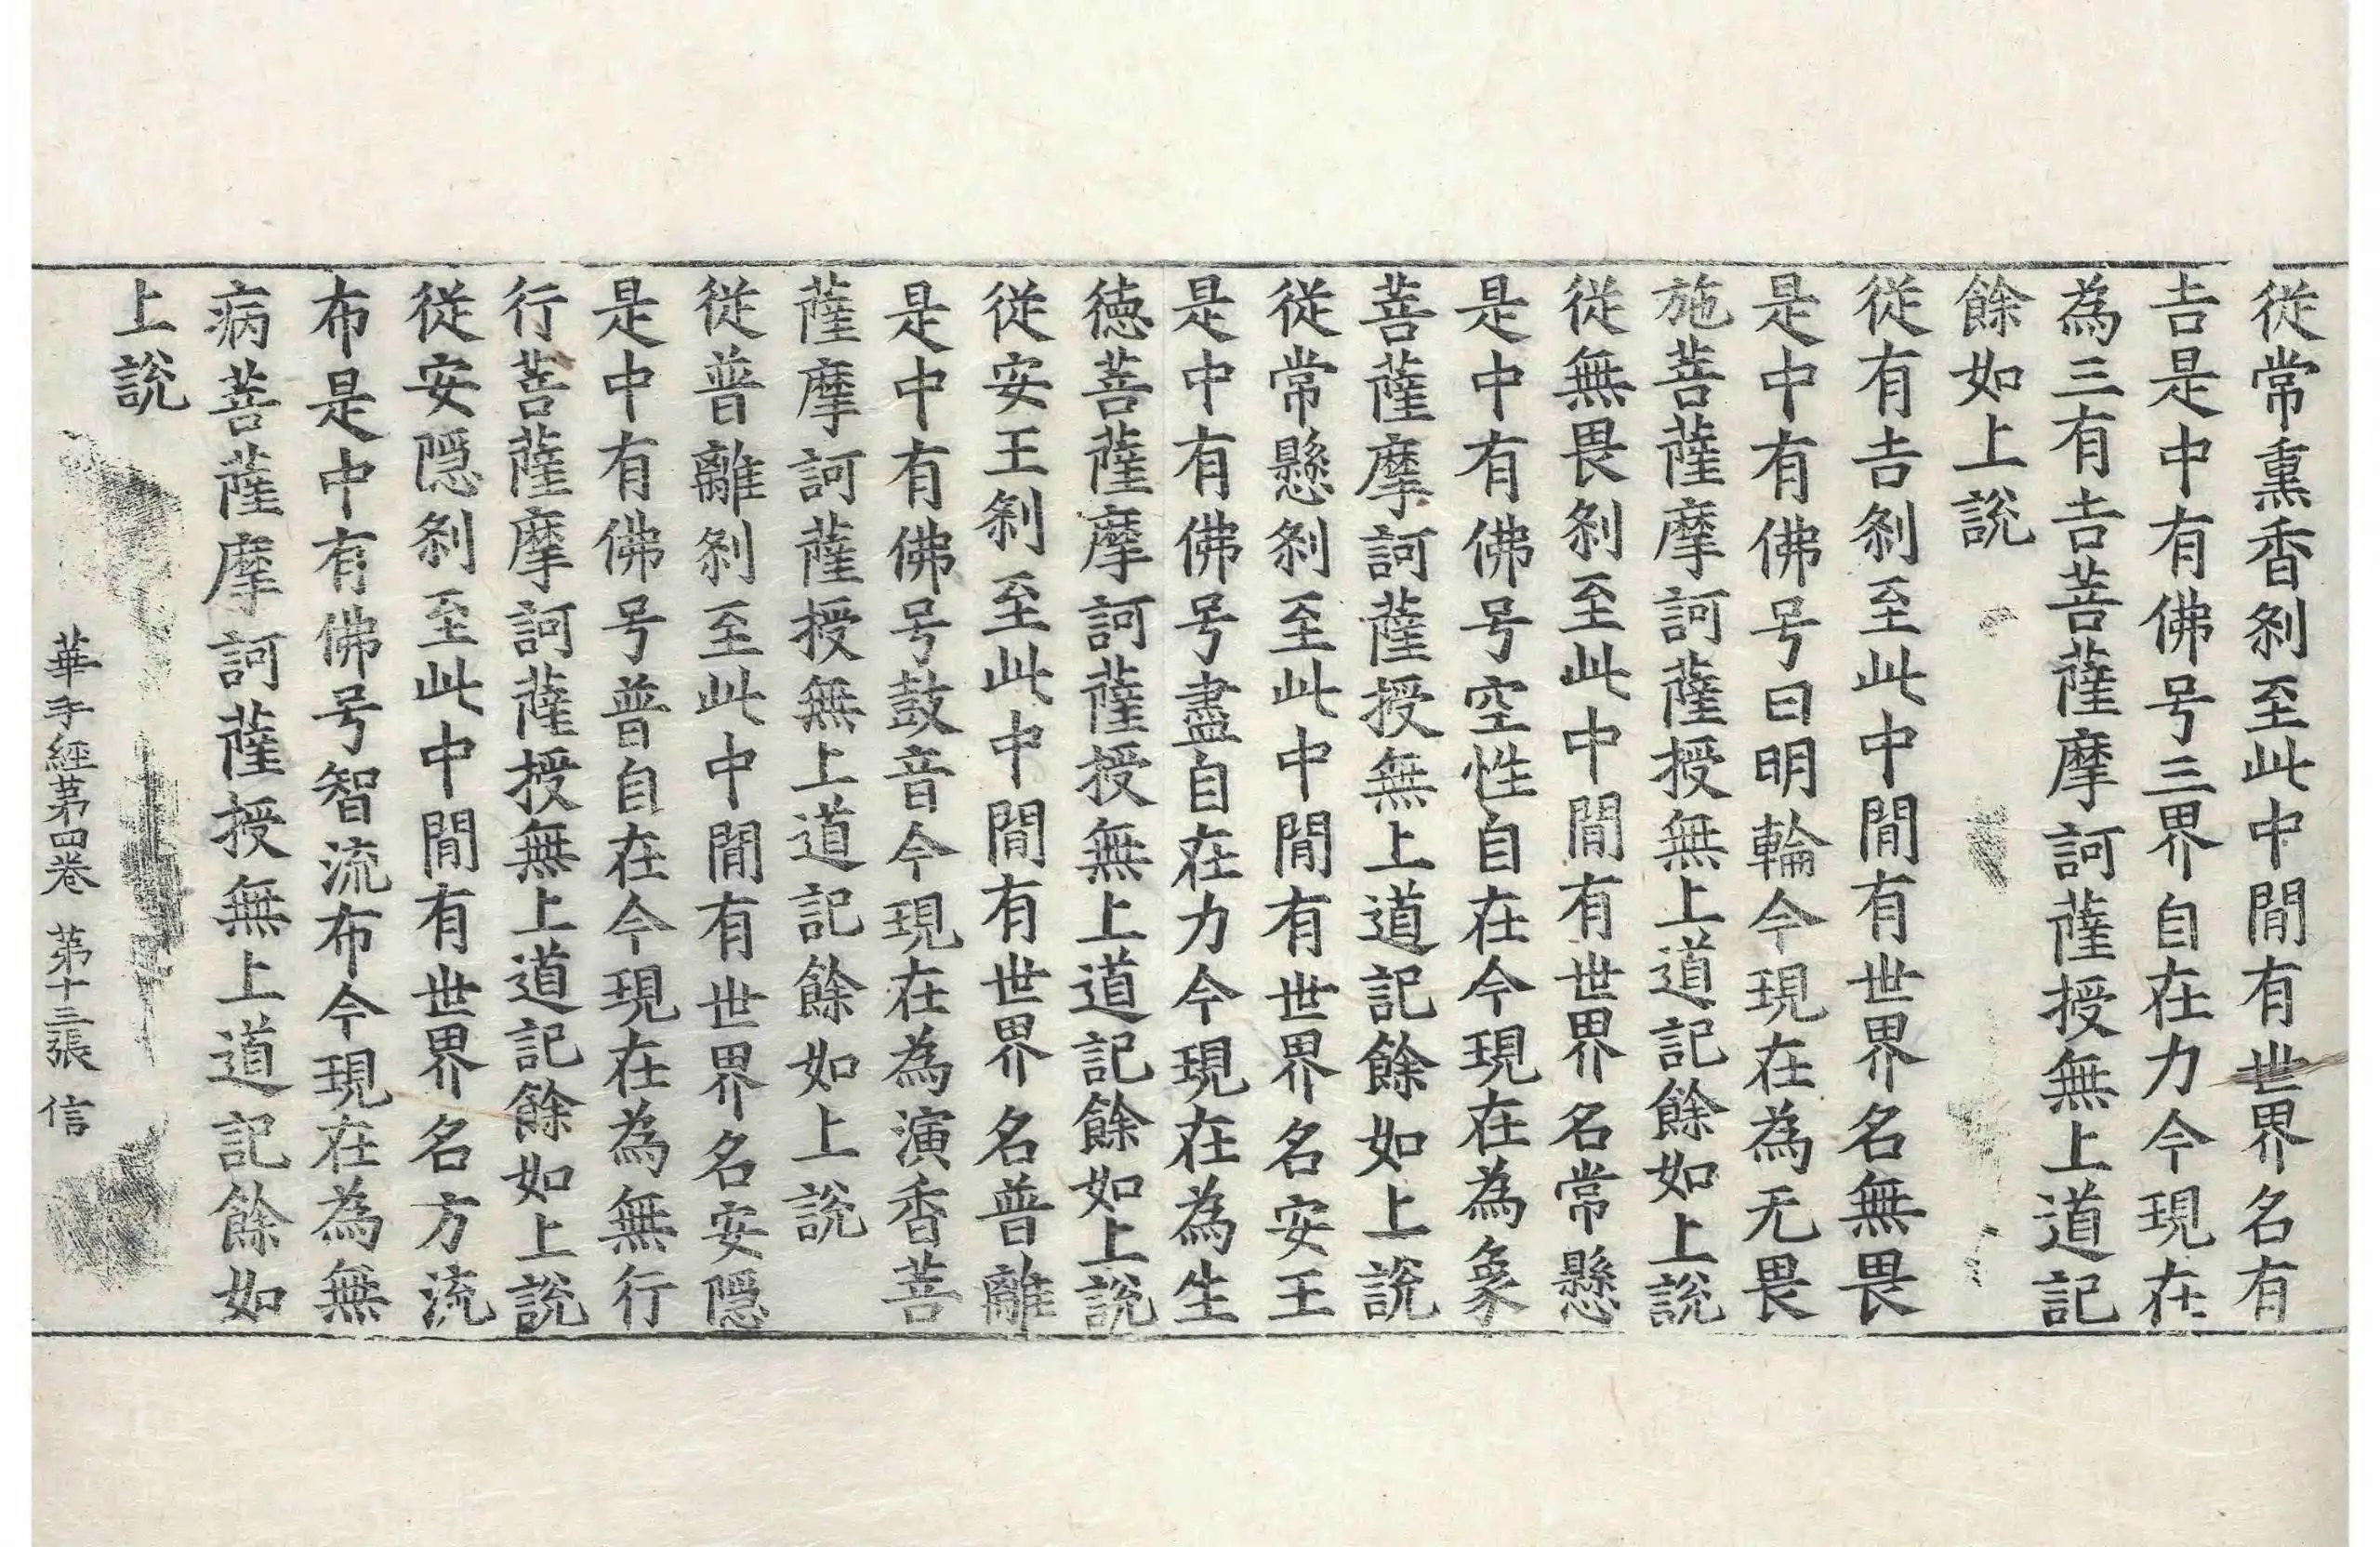 從常熏香刹至此中閒有世界名有
吉是中有佛号三界自在力今現在
為三有吉菩薩摩訶薩授無上道記
餘如上說
從有吉刹至此中閒有世界名無畏
是中有佛号曰明輪今現在為无畏
施菩薩摩訶薩授無上道記餘如上說
從無畏刹至此中閒有世界名常懸
是中有佛号空性自在今現在為象
菩薩摩訶薩授無上道記餘如上說
從常懸刹至此中閒有世界名安王
是中有佛号盡自在力今現在為生
徳菩薩摩訶薩授無上道記餘如上說
從安王刹至此中閒有世界名普離
是中有佛号鼓音今現在為演香菩
薩摩訶薩授無上道記餘如上說
從普離刹至此中閒有世界名安隱
是中有佛号普自在今現在為無行
行菩薩摩訶薩授無上道記餘如上說
從安隱刹至此中閒有世界名方流
布是中有佛号智流布今現在為無
病菩薩摩訶薩授無上道記餘如
上說
華手經第四卷 第十三張 信